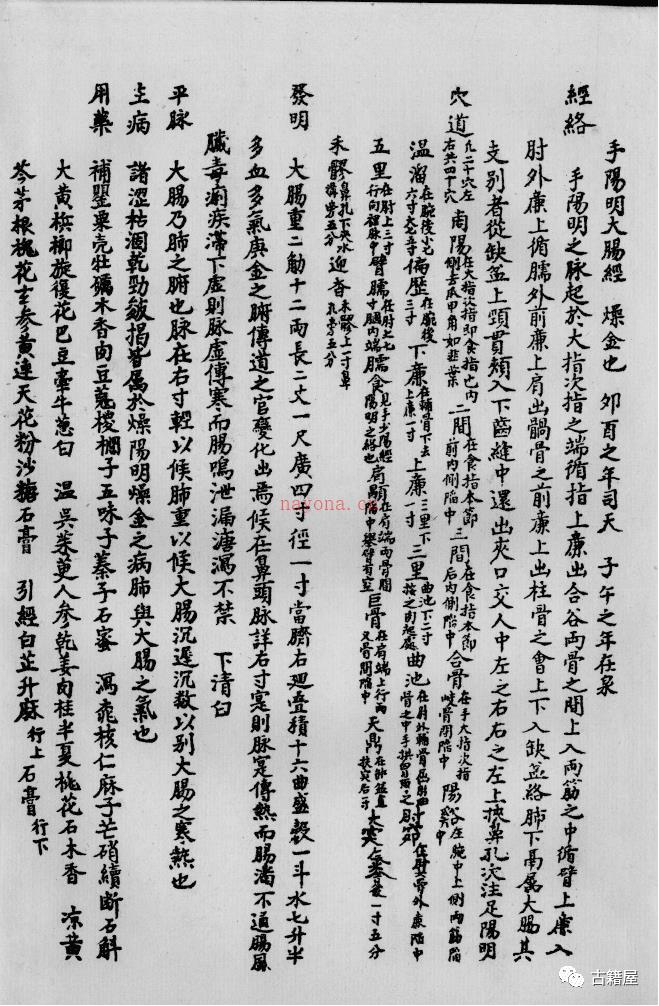 手陽明大腸經 燥金也 夘酉之年司天 子午之年在泉
經絡 手陽明之脉起於大指次指之端循指上廉出合谷兩骨之間上入兩筋之中循臂上廉入
肘外廉上循臑外前廉上肩出髃骨之前廉上出柱骨之會上下入缺盆絡肺下鬲属大腸其
支别者從缺盆上頸貫頰入下齒縫中還出夾口交人中左之右右之左上挾鼻孔次注足陽明
穴道 九二十穴左右共四十穴 商陽在大指次指即食指也內側去爪甲角如韭葉 二間在食指本節前內側陷中 三間在食指本節后內側陷中 合骨在手大指次指岐骨間陷中 陽谿在腕中上側兩筋陷中
温溜在腕後小士六寸大士五寸 偏歷在腕後三寸 下廉在輔骨下去上廉一寸 上廉三里下一寸 三里曲池下二寸按之肉起處 曲池在肘外輔骨屈肘曲骨之中手拱胸取之 肘窌在肘大骨外廉陷中
五里在肘上三寸行向裡脉中 臂臑在肘上七寸膕內端 臑會見手少陽經陽明之絡也 肩髃在肩端兩骨間陷中舉臂有空 巨骨在肩端上行兩叉骨間陷中 天鼎在缺盆直扶突后一寸五分
禾髎鼻孔下夾水溝旁五分 迎香禾髎上一寸鼻孔旁五分
發明 大腸重二觔十二兩長二丈一尺廣四寸徑一寸當臍右廻叠積十六曲盛穀一斗水七升半
多血多氣庚金之腑傳道之官變化出焉候在鼻頭脉詳右寸寔則脉寔傳熱而腸滿不通腸風
臟毒痢疾滯下虛則脉虛傳寒而腸鳴泄漏溏瀉不禁 下清臼
平脉 大腸乃肺之腑也脉在右寸輕以候肺重以候大腸沉遲沉數以别大腸之寒熱也
主病 諸澀枯涸乾勁皴揭皆属於燥陽明燥金之病肺與大腸之氣也
用藥 補罌粟壳牡礪木香肉豆蔻椶櫚子五味子蓁子石蜜 瀉桃核仁麻子芒硝續断石斛
大黃檳榔旋復花巴豆牽牛葱白 温吳茱萸人参乾姜肉桂半夏桃花石木香 凉黃
芩茅根槐花玄参黃連天花粉沙糖石膏 引經白芷升麻行上石膏行下
nayona.cn
古籍屋